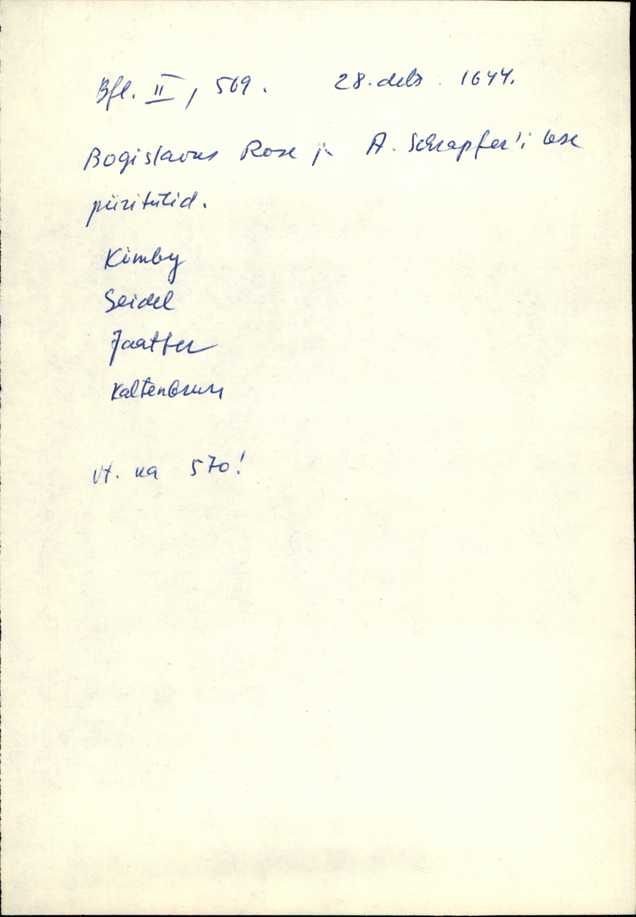 Bfl. II, 569. 28. dets. 1644.
Bogislavus Rose ja A. Schrapfer'i lese
püritutid.
Kimby
Seidel
Jaatter
Kaltenbrun
vt. ka 570!